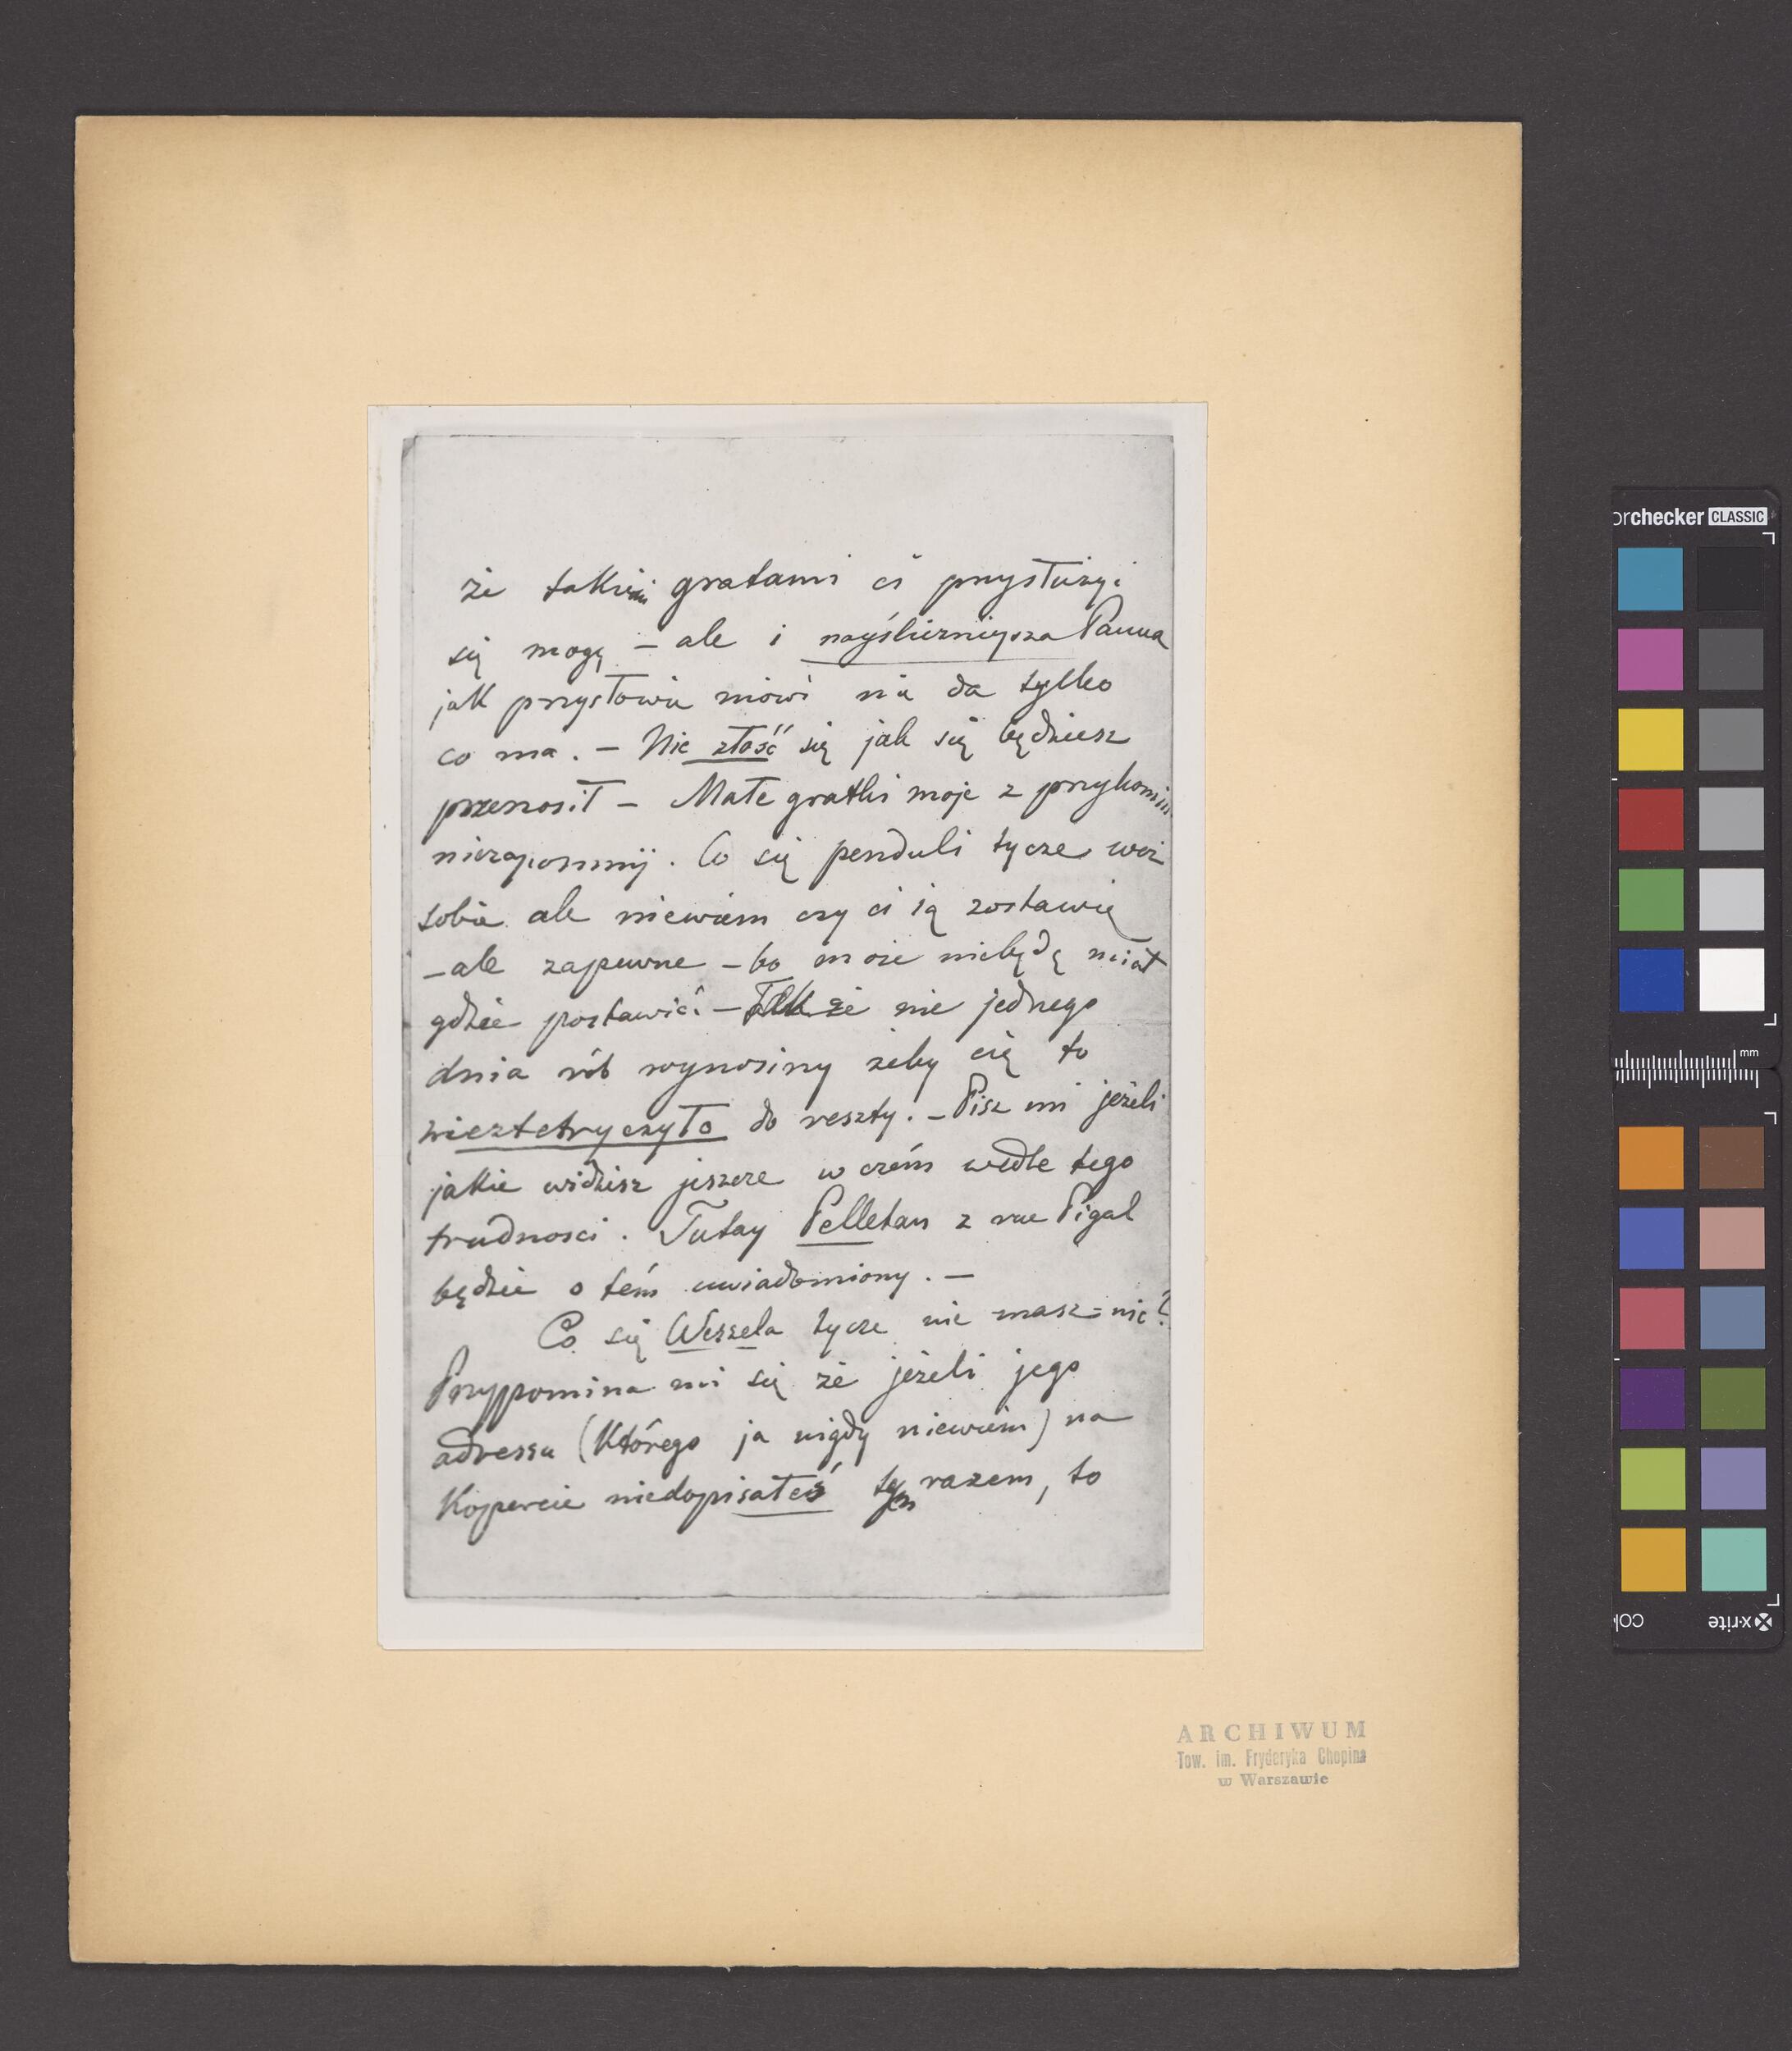 że takiemi gratami ci przysłużyć
się mogę – ale i nayśliczniejsza Panna
jak przysłowie mówi nie da tylko
co ma. – Nie złość się jak się będziesz
przenosił – Małe gratki moje z przykomin
niezapomnij. Co się penduli tycze weź
sobie ale niewiem czy ci ią zostawię
– ale zapewne – bo może niebędę miał
gdzie postawić – Także nie jednego
dnia rób wynosiny żeby cię to
nieztetryczyło do reszty. – Pisz mi jeżeli
jakie widzisz jeszcze w czém wedle tego
trudnosci. Tutay Pelletan z rue Pigal
będzie o tém uwiadomiony. –
Co się Wessela tycze nie masz = nic?
Przypomina mi się że jeżeli jego
adressu (którego ja nigdy niewiem) na
Kopercie niedopisałeś tym razem, to
ARCHIWUM
Tow. im. Fryderyka Chopina
w Warszawie
orchecker CLASSIC
mm
x-rite
col